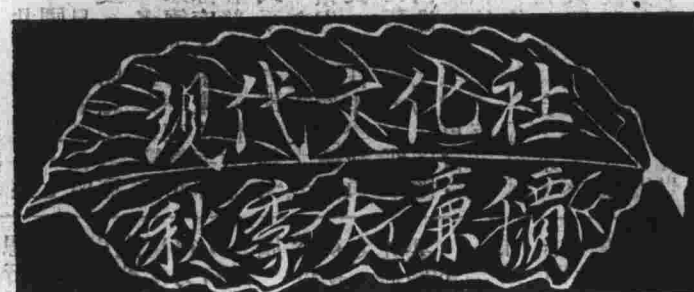 现代文化社
秋季大廉價